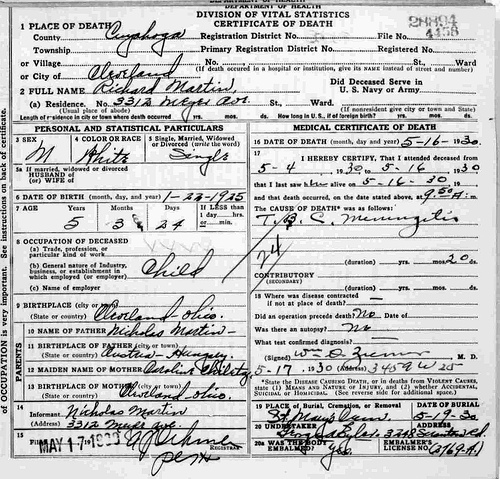 DEPARTMENT OF HEALTH
DIVISION OF VITAL STATISTICS
CERTIFICATE OF DEATH
1 PLACE OF DEATH
County Cuyahoga Registration District No. File No.
Township Primary Registration District No. Registered No. 4456
or Village No. St., Ward
or City of Cleveland (If death occurred in a hospital or institution, give its NAME instead of street and number)
2 FULL NAME Richard Martin Did Deceased Serve in U. S. Navy or Army
(a) Residence. No. 3312 Meyer Ave. St., Ward.
(Usual place of abode) (If nonresident give city or town and State)
Length of residence in city or town where death occurred yrs. mos. ds. How long in U. S., if of foreign birth? yrs. mos. ds.
PERSONAL AND STATISTICAL PARTICULARS
3 SEX 4 COLOR OR RACE 5 Single, Married, Widowed or Divorced (write the word)
M White Single
5a If married, widowed or divorced
HUSBAND of
(or) WIFE of
6 DATE OF BIRTH (month, day, and year) 1-23-1925
7 AGE Years Months Days If LESS than 1 day, hrs. or min.
5 3 24
8 OCCUPATION OF DECEASED
(a) Trade, profession, or particular kind of work
(b) General nature of Industry, business, or establishment in which employed (or employer) Child
(c) Name of employer
9 BIRTHPLACE (city or town)
(State or country) Cleveland Ohio.
PARENTS
10 NAME OF FATHER Nicholas Martin
11 BIRTHPLACE OF FATHER (city or town)
(State or country) Austria-Hungary
12 MAIDEN NAME OF MOTHER Caroline
13 BIRTHPLACE OF MOTHER (city or town)
(State or country) Cleveland Ohio.
14 Informant Nicholas Martin
(Address) 3312 Meyer Ave.
15 Filed MAY 17 1930 REGISTRAR
MEDICAL CERTIFICATE OF DEATH
16 DATE OF DEATH (month, day and year) 5-16-1930
17 I HEREBY CERTIFY, That I attended deceased from
5-4, 1930 to 5-16, 1930
that I last saw him alive on 5-16-30, 19
and that death occurred, on the date stated above, at 9:50 A. m.
The CAUSE OF DEATH* was as follows:
T.B.C. Meningitis
24
(duration) yrs. mos. 20 ds.
CONTRIBUTORY
(SECONDARY)
(duration) yrs. mos. ds.
18 Where was disease contracted
if not at place of death?
Did an operation precede death? No Date of
Was there an autopsy? No
What test confirmed diagnosis?
(Signed) M. D.
5-17, 1930 (Address) 3459 W 25
*State the DISEASE CAUSING DEATH, or in deaths from VIOLENT CAUSES, state (1) MEANS AND NATURE OF INJURY, and (2) whether ACCIDENTAL, SUICIDAL, or HOMICIDAL. (See reverse side for additional space.)
19 PLACE OF Burial, Cremation, or Removal DATE OF BURIAL
St Marys 5-19-30
20 UNDERTAKER ADDRESS
20a WAS THE BODY EMBALMED? Yes EMBALMER'S LICENSE NO.
of OCCUPATION is very important. See instructions on back of certificate.